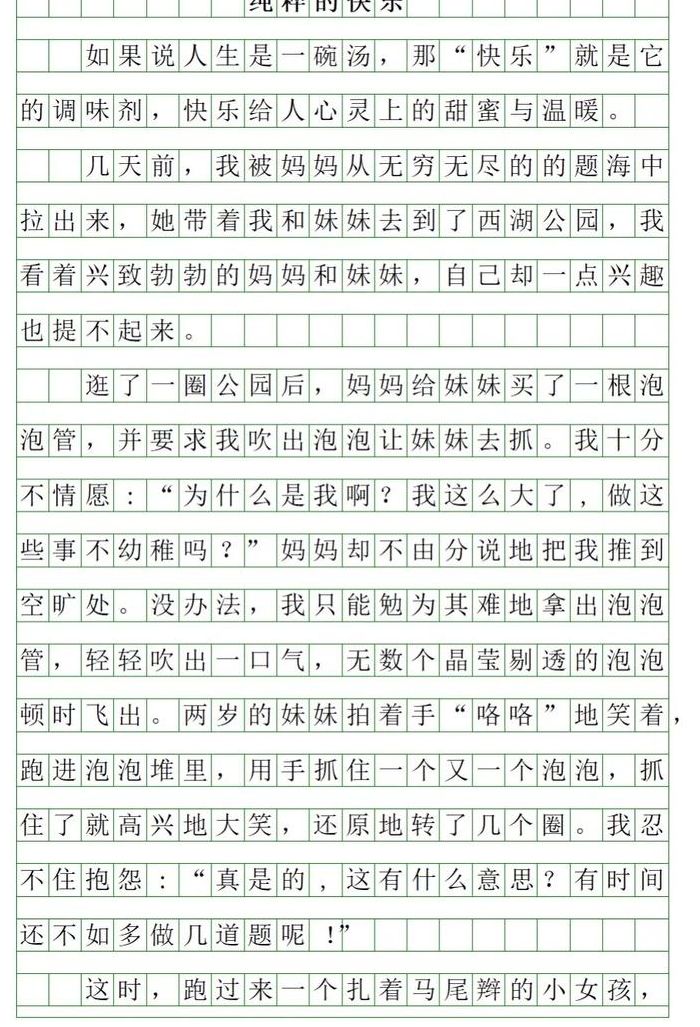 纯粹的快乐
如果说人生是一碗汤，那“快乐”就是它
的调味剂，快乐给人心灵上的甜蜜与温暖。
几天前，我被妈妈从无穷无尽的的题海中
拉出来，她带着我和妹妹去到了西湖公园，我
看着兴致勃勃的妈妈和妹妹，自己却一点兴趣
也提不起来。
逛了一圈公园后，妈妈给妹妹买了一根泡
泡管，并要求我吹出泡泡让妹妹去抓。我十分
不情愿：“为什么是我啊？我这么大了，做这
些事不幼稚吗？”妈妈却不由分说地把我推到
空旷处。没办法，我只能勉为其难地拿出泡泡
管，轻轻吹出一口气，无数个晶莹剔透的泡泡
顿时飞出。两岁的妹妹拍着手“咯咯”地笑着，
跑进泡泡堆里，用手抓住一个又一个泡泡，抓
住了就高兴地大笑，还原地转了几个圈。我忍
不住抱怨：“真是的，这有什么意思？有时间
还不如多做几道题呢！”
这时，跑过来一个扎着马尾辫的小女孩，